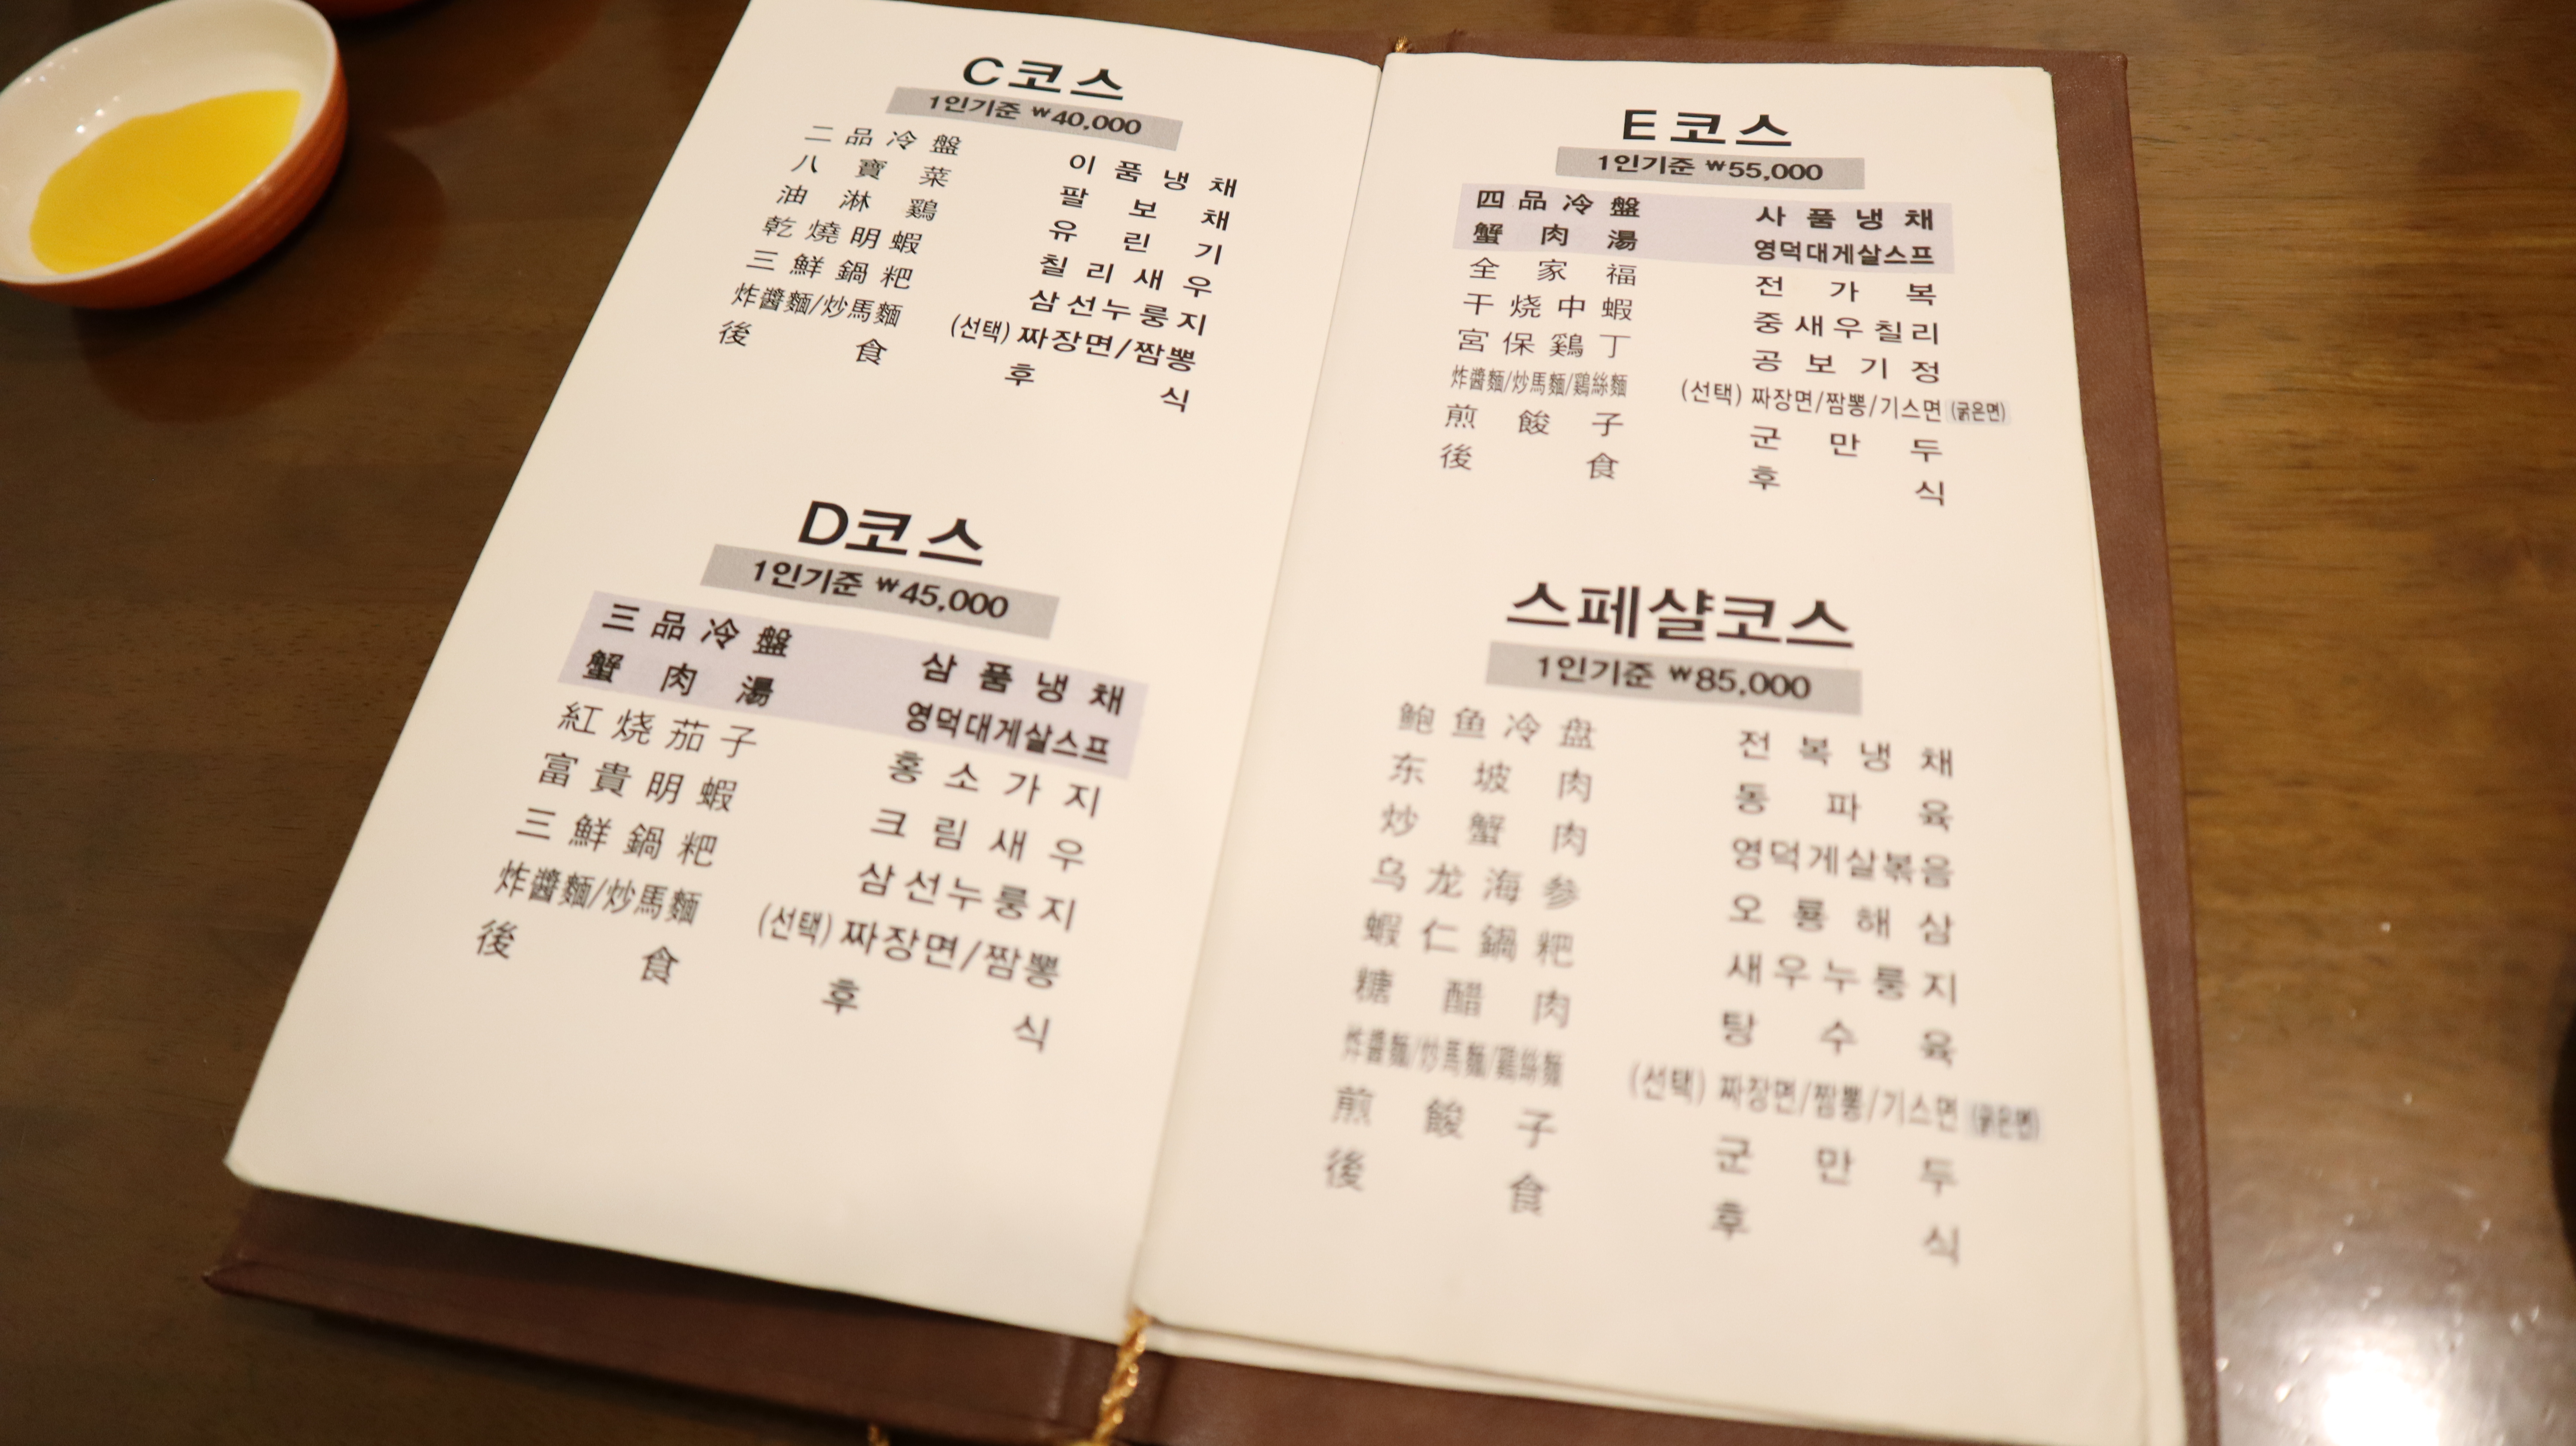 C코스
1인기준 ₩40,000
二品冷盤 이품냉채
八寶菜 팔보채
油淋鷄 유린기
乾燒明蝦 칠리새우
三鮮鍋粑 삼선누룽지
炸醬麵/炒馬麵 (선택) 짜장면/짬뽕
後食 후식
D코스
1인기준 ₩45,000
三品冷盤 삼품냉채
蟹肉湯 영덕대게살스프
紅烧茄子 홍소가지
富貴明蝦 크림새우
三鮮鍋粑 삼선누룽지
炸醬麵/炒馬麵 (선택) 짜장면/짬뽕
後食 후식
E코스
1인기준 ₩55,000
四品冷盤 사품냉채
蟹肉湯 영덕대게살스프
全家福 전가복
干烧中蝦 중새우칠리
宮保鷄丁 공보기정
炸醬麵/炒馬麵/鷄絲麵 (선택) 짜장면/짬뽕/기스면 (굵은면)
煎餕子 군만두
後食 후식
스페샬코스
1인기준 ₩85,000
鲍鱼冷盘 전복냉채
东坡肉 동파육
炒蟹肉 영덕게살볶음
乌龙海参 오룡해삼
蝦仁鍋粑 새우누룽지
糖醋肉 탕수육
炸醬麵/炒馬麵/鷄絲麵 (선택) 짜장면/짬뽕/기스면 (굵은면)
煎餕子 군만두
後食 후식